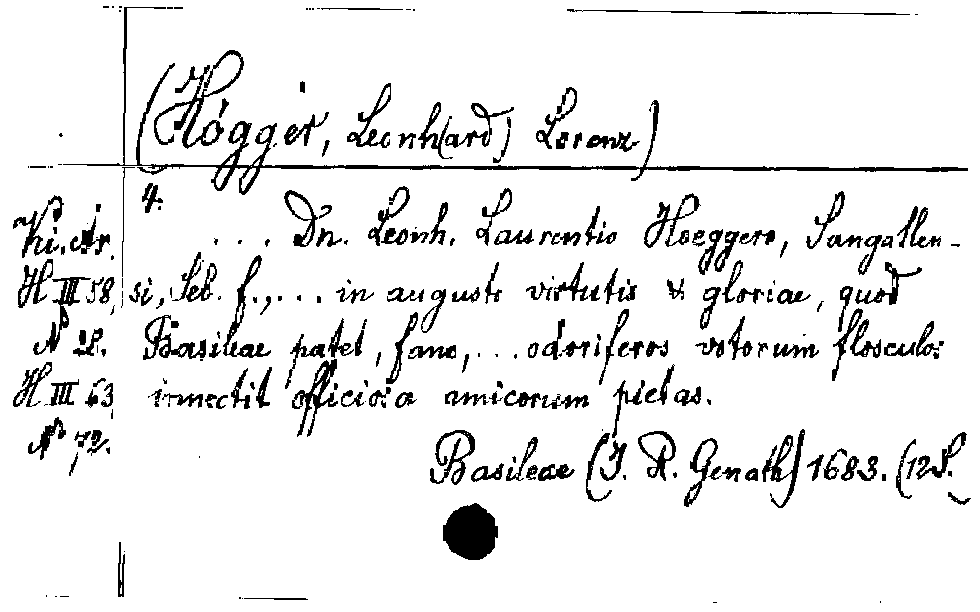 (Högger, Leonh(ard) Lorenz)
4.
Ki. Ar. ... Dn. Leonh. Laurentio Hoeggero, Sangallen-
H III 58, si, Seb. f., ... in augusto virtutis & gloriae, quod
N° 28. Basileae patet, fano, ... odoriferos votorum flosculos
H III 63 innectit officiosa amicorum pietas.
N° 72.
Basileae (J. R. Genath) 1683. (12 S.